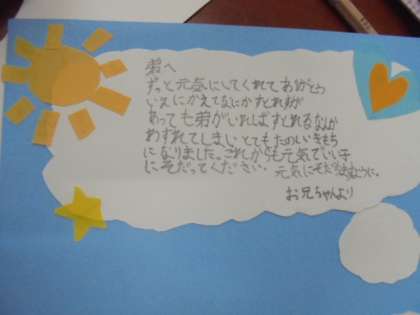 弟へ
ずっと元気にしてくれてありがとう
いえにかえてなにかすとれすが
あっても弟がいればすとれすなんか
わすれてしまいとてもたのしいきもち
になりました。これからも元気でいい子
にそだってください。元気にそだちますように。
お兄ちゃんより